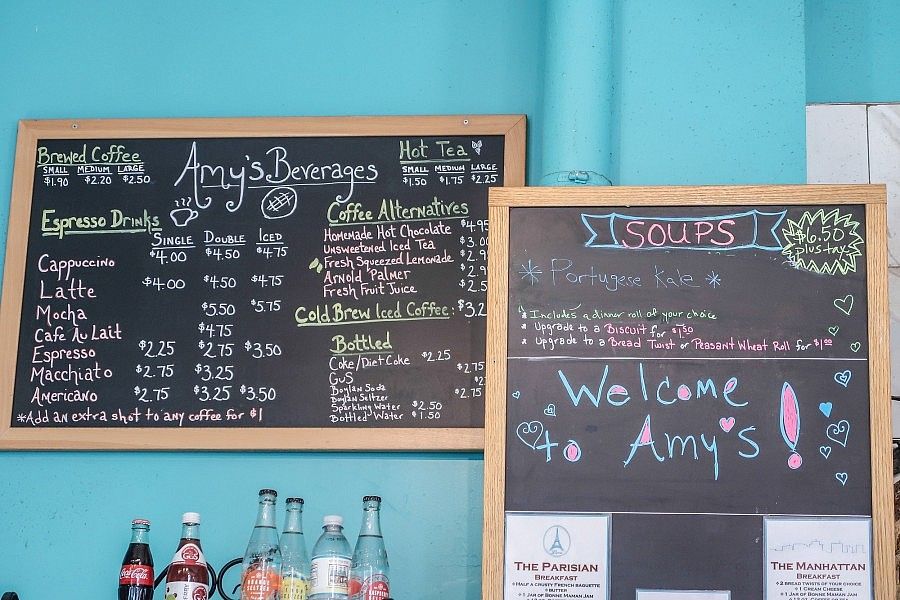 Brewed Coffee
SMALL MEDIUM LARGE
$1.90 $2.20 $2.50
Amy's Beverages
Hot Tea
SMALL MEDIUM LARGE
$1.50 $1.75 $2.25
Espresso Drinks
Single Double Iced
Cappuccino $4.00 $4.50 $4.75
Latte $4.00 $4.50 $4.75
Mocha $5.50 $5.75
Cafe Au Lait $4.75
Espresso $2.25 $2.75 $3.50
Macchiato $2.75 $3.25
Americano $2.75 $3.25 $3.50
*Add an extra shot to any coffee for $1
Coffee Alternatives
Homemade Hot Chocolate $4.95
Unsweetened Iced Tea $3.00
Fresh Squeezed Lemonade $2.9
Arnold Palmer $2.9
Fresh Fruit Juice $2.5
Cold Brew Iced Coffee: $3.2
Bottled
Coke/Diet Coke $2.25
GuS $2.75
Boylan Soda
Boylan Seltzer $2.75
Sparkling Water $2.50
Bottled Water $1.50
SOUPS
$6.50
plus tax
* Portugese Kale *
* Includes a dinner roll of your choice
* Upgrade to a Biscuit for $1.50
* Upgrade to a Bread Twist or Peasant Wheat Roll for $1.00
Welcome
to Amy's!
THE PARISIAN
BREAKFAST
HALF A CRUSTY FRENCH BAGUETTE
BUTTER
1 JAR OF BONNE MAMAN JAM
THE MANHATTAN
BREAKFAST
2 BREAD TWISTS OF YOUR CHOICE
1 CREAM CHEESE
1 JAR OF BONNE MAMAN JAM
Coca-Cola
GuS
ORANGE
SELTZER
RASPBERRY